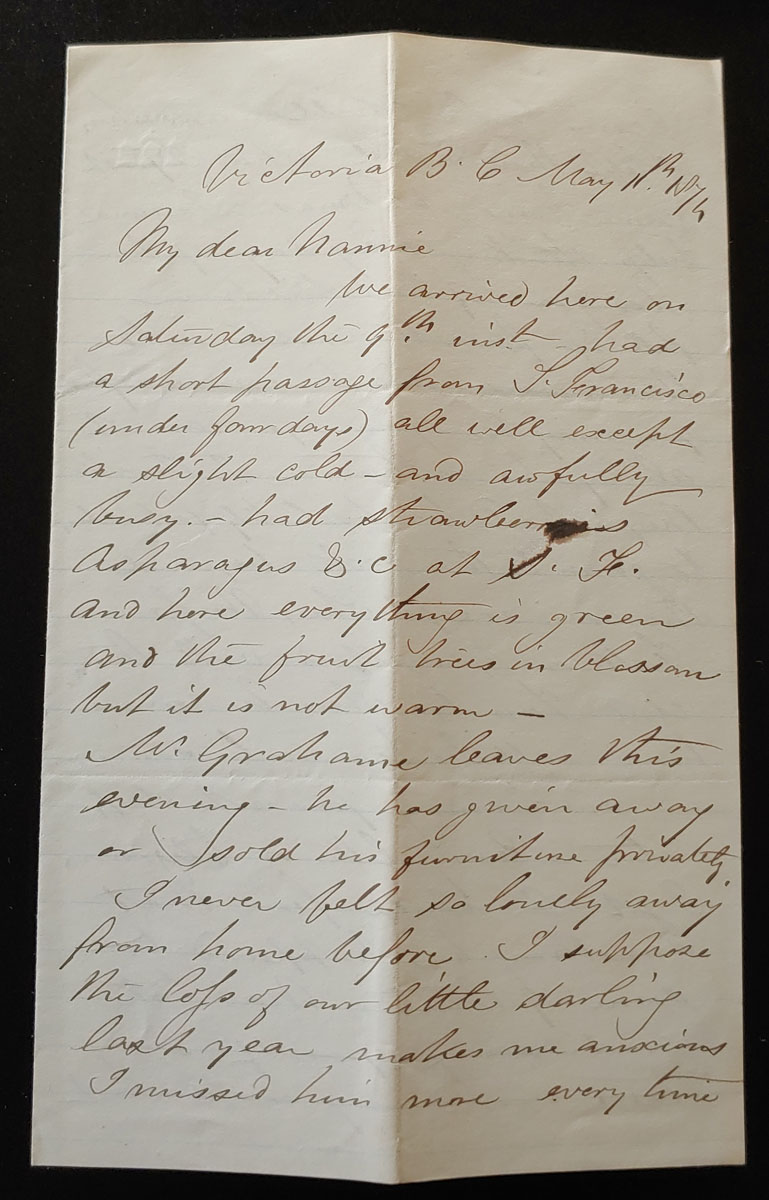 Victoria B. C May 11th 1874
My dear Nannie
We arrived here on
Saturday the 9th. inst - had
a short passage from S. Francisco
(under four days) all well except
a slight cold - and awfully
busy. - had strawberries
Asparagus &.c at S. F.
and here everything is green
and the fruit trees in blossom
but it is not warm -
Mr. Grahame leaves this
evening - he has given away
or sold his furniture privately
I never felt so lonely away
from home before. I suppose
the loss of our little darling
last year makes me anxious
I missed him more every time